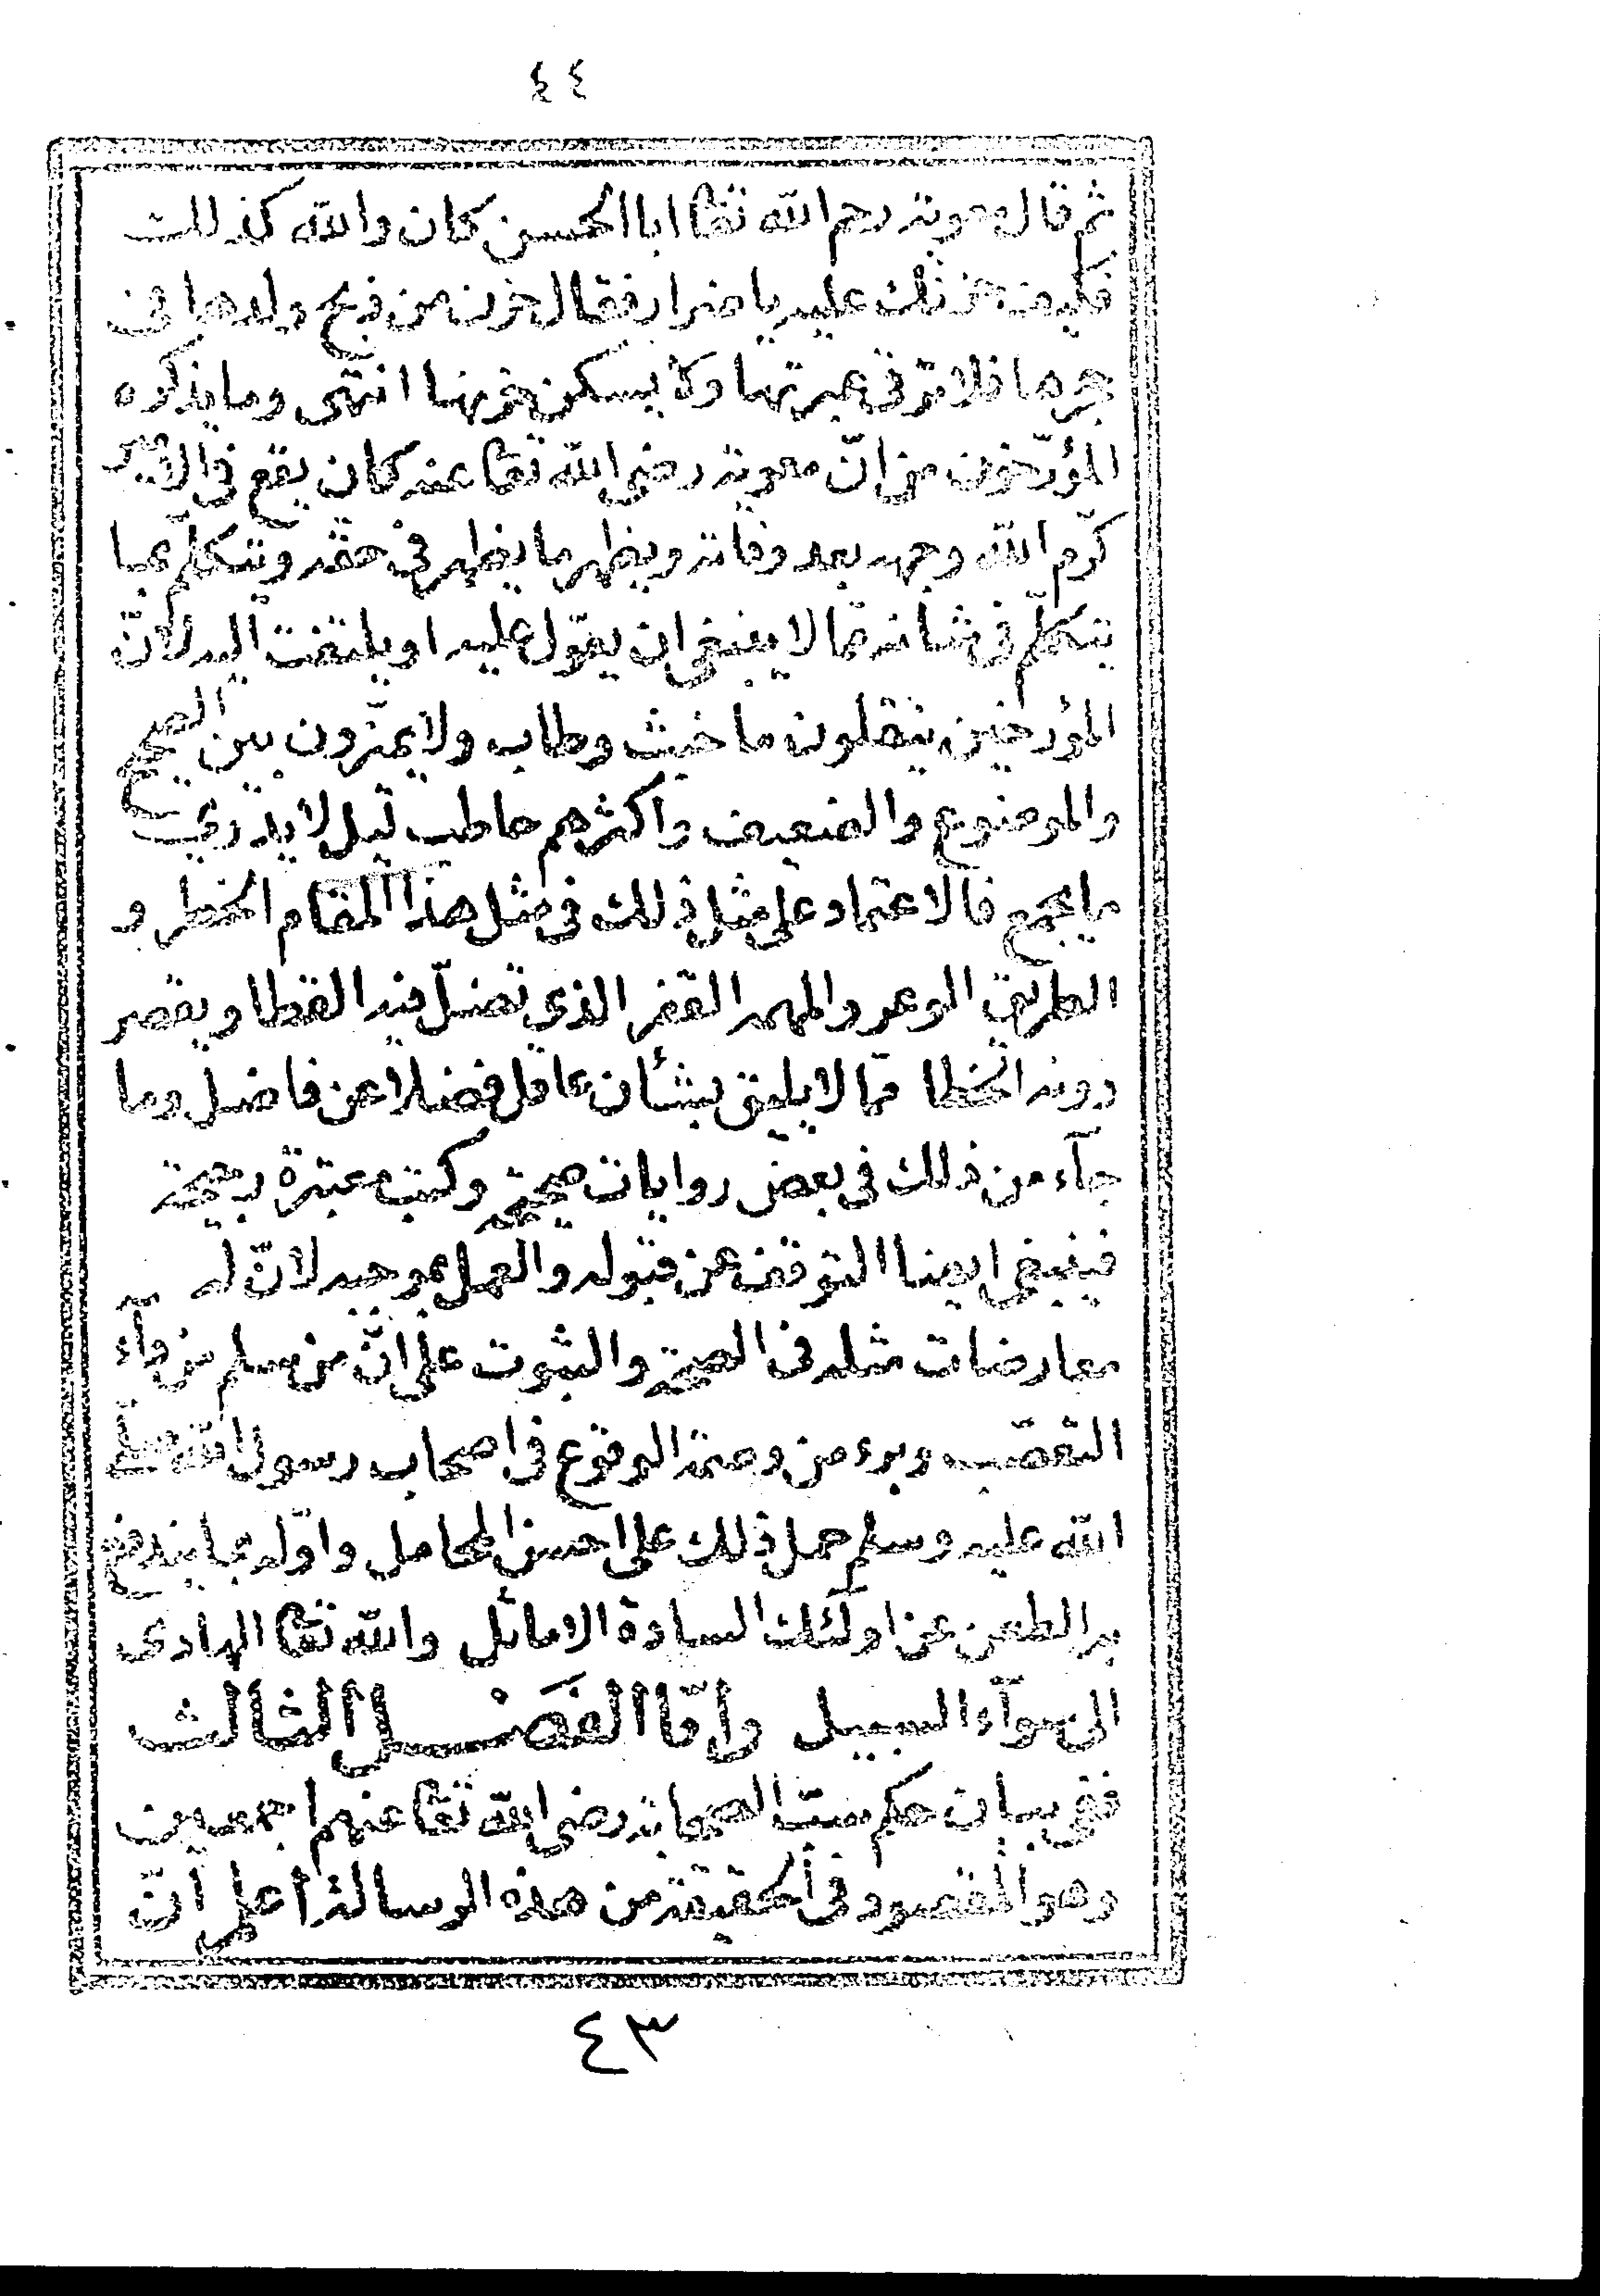 ٤٤
ثم قال معوية رحم الله تعا ابا الحسن كان والله كذلك
فكيف حزنك عليه يا ضرار فقال حزن من ذبح ولدها فى
حجرها فلا ترقى عبرتها ولا يسكن حزنها انتهى وما يذكره
المؤرّخون من انّ معوية رضى الله تعا عنه كان يقع فى الامير
كرّم الله وجهه بعد وفاته ويظهر ما يظهر فى حقّه ويتكلّم بما
يتكلّم فى شانه ممّا لا ينبغى ان يعوّل عليه او يلتفت اليه لانّ
المؤرخين ينقلون ما خبث وطاب ولا يميّزون بين الصحيح
والموضوع والضعيف واكثرهم حاطب ليل لا يدرى
ما يجمع فالاعتماد على مثل ذلك فى مثل هذا المقام الخطر و
الطريق الوعر والمهمه القفر الذى تضلّ فيه القطا ويقصر
دونه الخطا ممّا لا يليق بشأن عاقل فضلا عن فاضل وما
جآء من ذلك فى بعض روايات صحيحة وكتب معتبرة رجيحة
فينبغى ايضا التوقف عن قبوله والعمل بموجبه لانّ له
معارضات مثله فى الصحة والثبوت على انّ من سلم من دآء
التعصّب وبرء من وصمة الوقوع فى اصحاب رسول الله صلّى
الله عليه وسلم حمل ذلك على احسن المحامل واوّله بما يندفع
به الطعن عن اولئك السادة الاماثل والله تعا الهادى
الى سوآء السبيل وامّا الفَصْل الثالث
ففى بيان حكم سبّ الصحابة رضى الله تعا عنهم اجمعين
وهو المقصود فى الحقيقة من هذه الرسالة اعلم انّ
٤٣